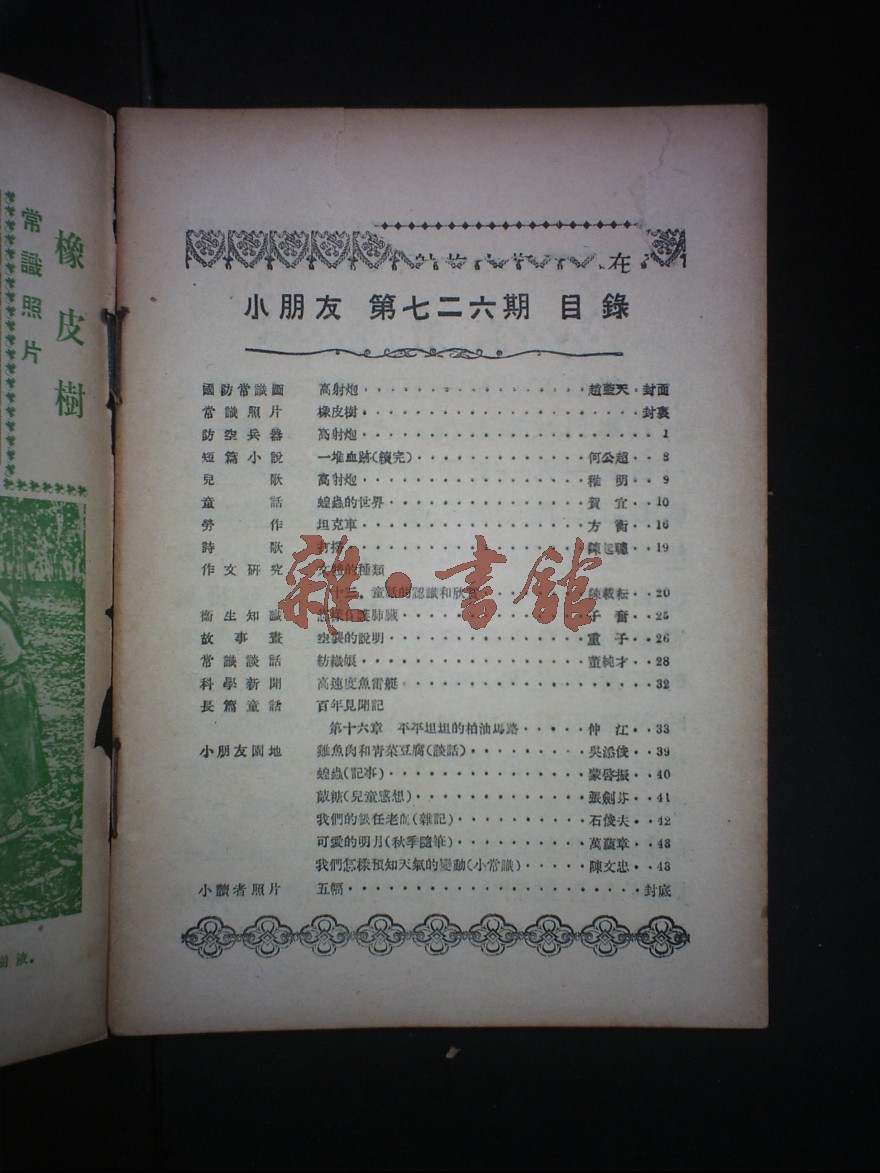 橡皮樹
常識照片
液。
在
小朋友 第七二六期 目錄
國防常識圖 高射炮 趙藍天 封面
常識照片 橡皮樹 封裏
防空兵器 高射炮 1
短篇小說 一堆血跡(續完) 何公超 8
兒歌 高射炮 稚明 9
童話 蝗蟲的世界 賀宜 10
勞作 坦克車 方衡 16
詩歌 陳 19
作文研究 文體的種類
十三、童話的認識和欣賞 陳載耘 20
衞生知識 怎樣保護肺臟 子奮 25
故事畫 空襲的說明 重子 26
常識談話 紡織娘 董純才 28
科學新聞 高速度魚雷艇 32
長篇童話 百年見聞記
第十六章 平平坦坦的柏油馬路 仲江 33
小朋友園地 雞魚肉和青菜豆腐(談話) 吳 俊 39
蝗蟲(記事) 蒙啓振 40
敲糖(兒童感想) 張劍芬 41
我們的級任老師(雜記) 石俊夫 42
可愛的明月(秋季隨筆) 萬蘊章 43
我們怎樣預知天氣的變動(小常識) 陳文忠 43
小讀者照片 五幅 封底
雜·書館